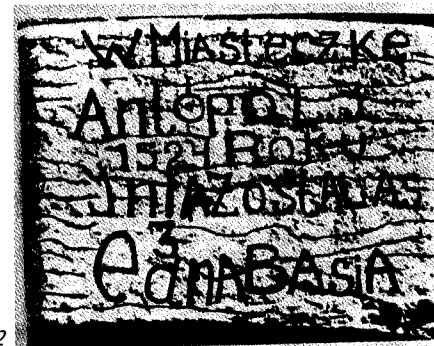 W MiAStecZKe
AntopoL J
1521 RokU
JnfAZOStALAS
e3dnABASiA
2